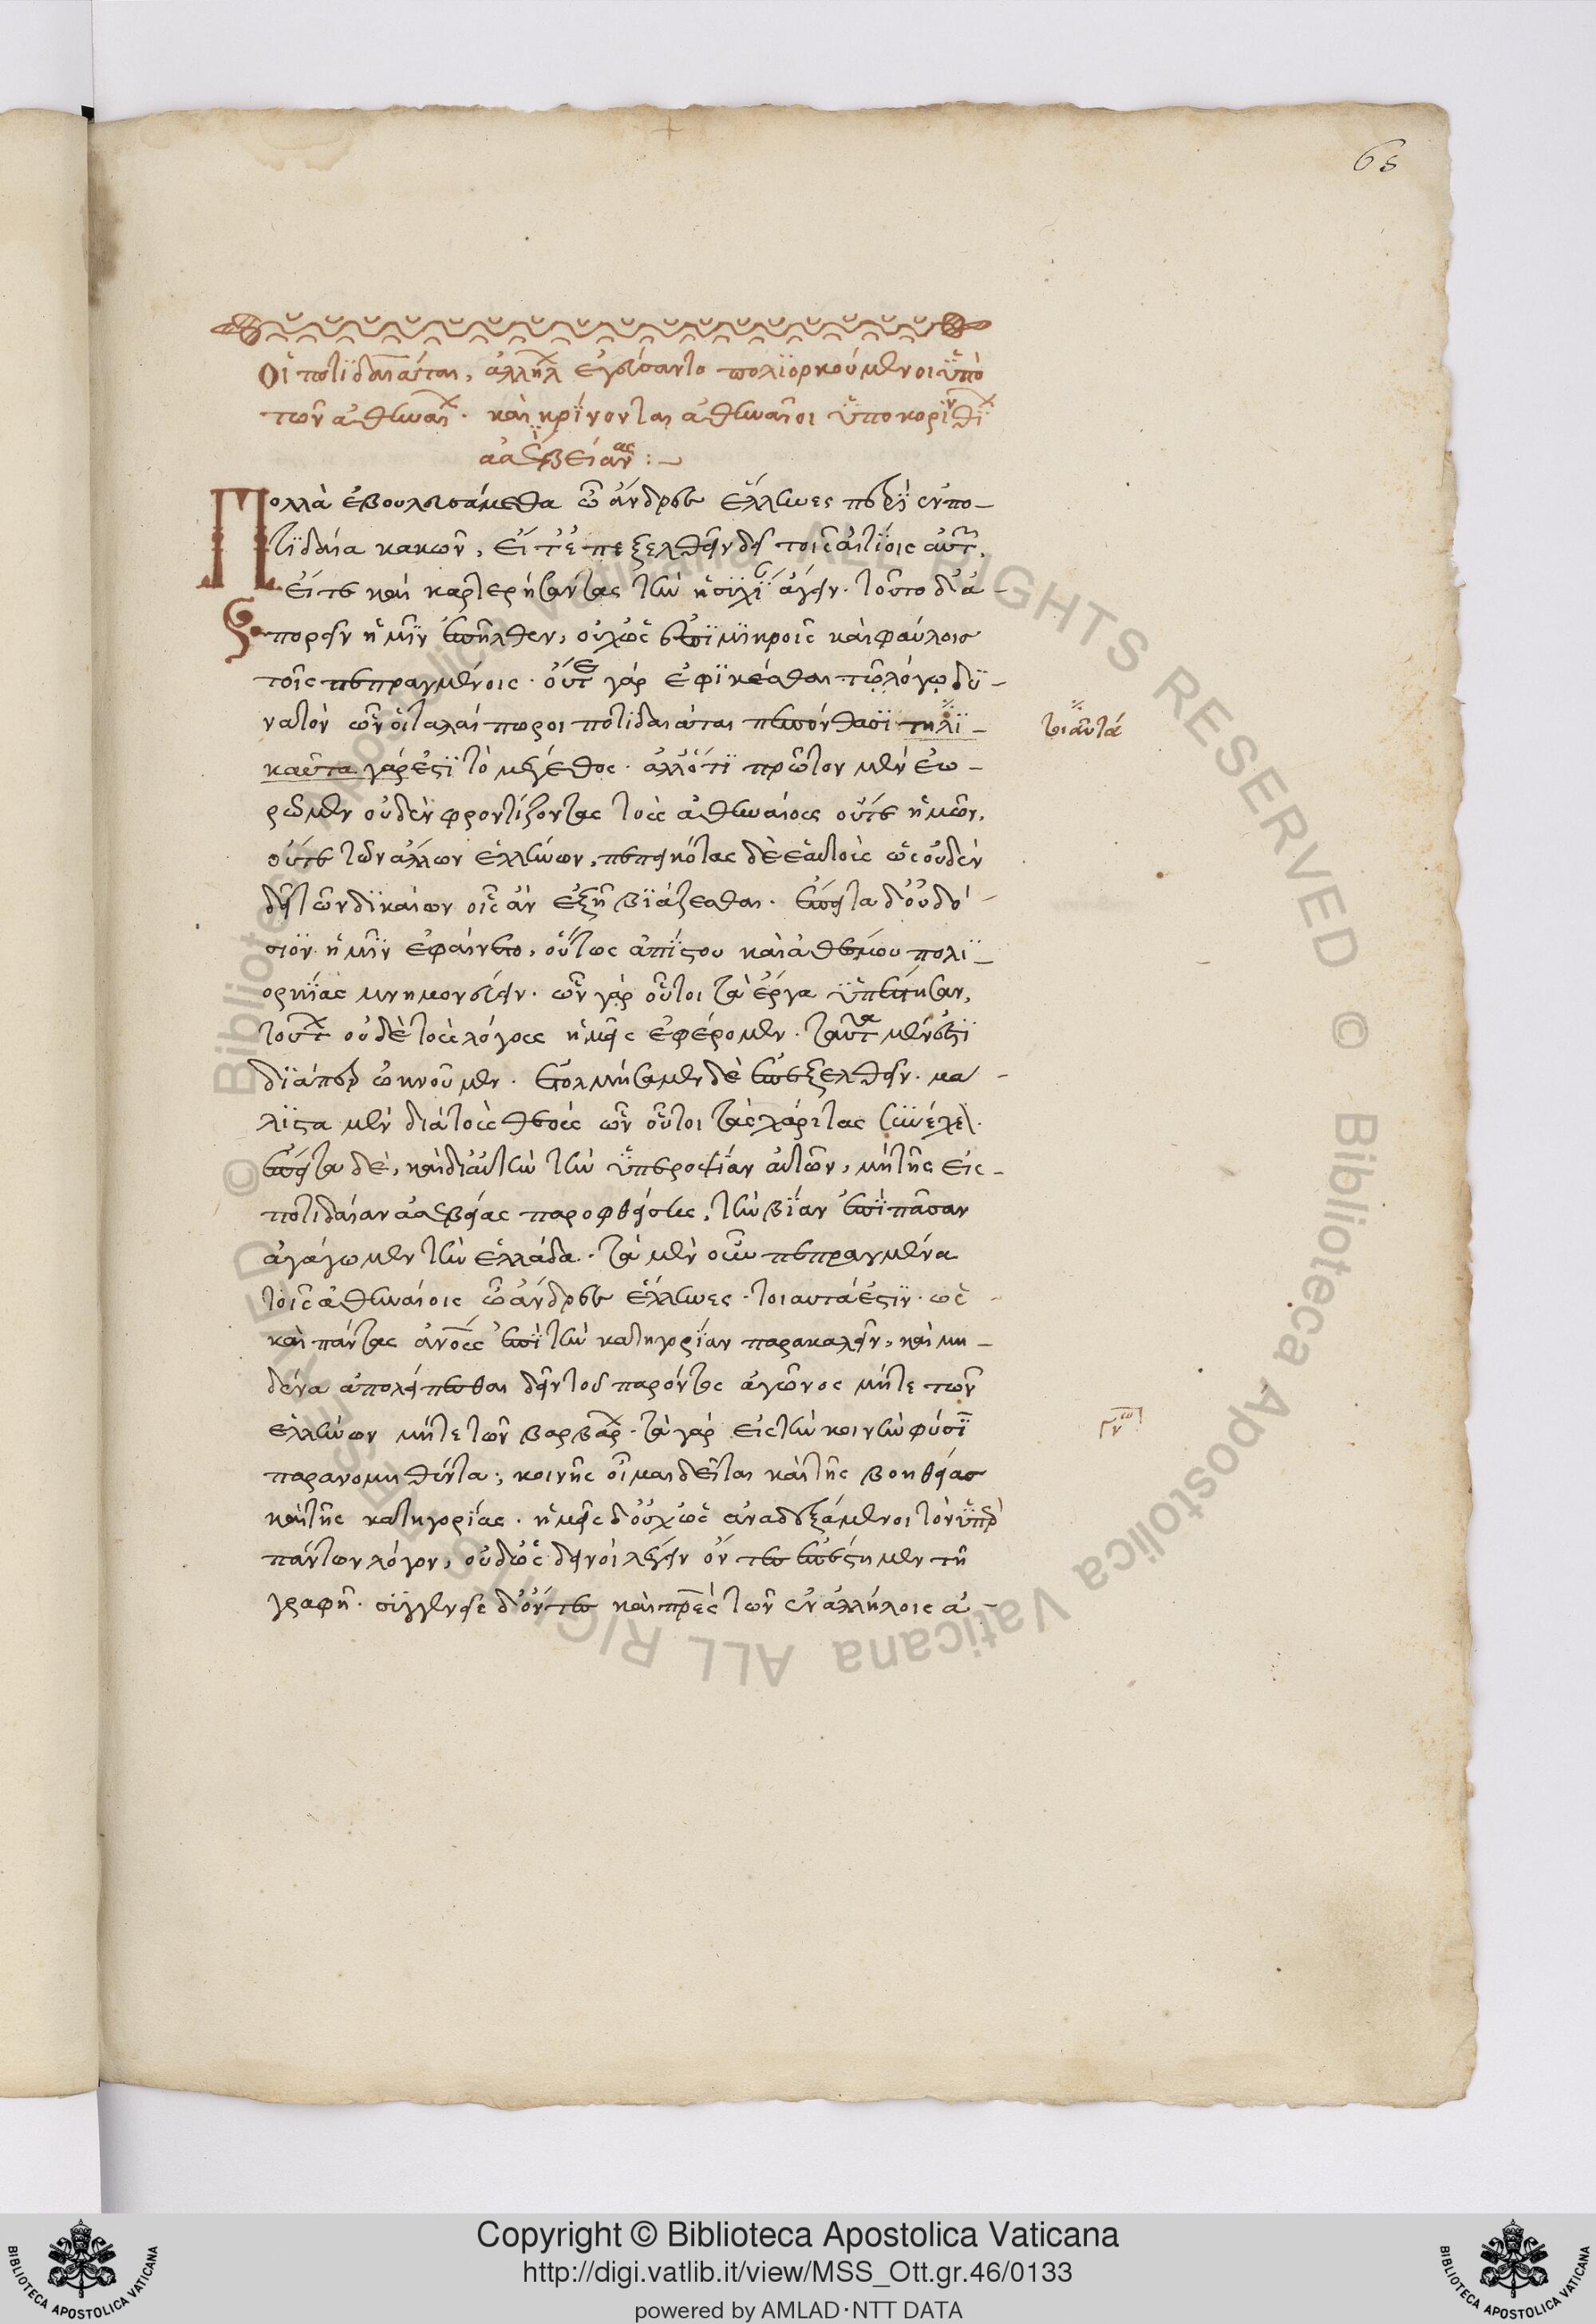 65
Οἱ ποτιδαιάται, ἀλλήλ ἐγεύσαντο πολιορκούμενοι ὑπὸ
τῶν ἀθηναί. καὶ κρίνονται ἀθηναῖοι ὑπὸ κορινθί
ἀσεβείας :
Πολλὰ ἐβουλευσάμεθα ὦ ἄνδρες ἕλληνες περὶ ἐν πο-
τιδαία κακῶν, εἴτε πεξελθεῖν δεῖ τοῖς αἰτίοις αὐτ,
εἴτε καὶ καρτερήσαντας τὴν ἡσυχί ἄγειν. τοῦτο δ' ἀ-
πορεῖν ἡμῖν ἐπῆλθεν, οὐχ ὡς ἐπὶ μικροῖς καὶ φαύλοις
τοῖς πεπραγμένοις. οὔτε γὰρ ἐφικέσθαι τῶ λόγω δυ-
νατὸν ὧν οἱ ταλαίπωροι ποτιδαιάται πεπόνθασι τηλι-
τοιαῦτά
καῦτα γάρ ἐστι τὸ μέγεθος. ἀλλ' ὅτι πρῶτον μὲν ἑω-
ρῶμεν οὐδὲν φροντίζοντας τοὺς ἀθηναίους οὔτε ἡμῶν,
οὔτε τῶν ἄλλων ἑλλήνων, πεπεικότας δὲ ἑαυτοὺς ὡς οὐδὲν
δεῖ τῶν δικαίων οἷς ἂν ἐξῆ βιάζεσθαι. ἔπειτα δ' οὐδ' ὅ-
σιον ἡμῖν ἐφαίνετο, οὕτως ἀπίστου καὶ ἀθέσμου πολι-
ορκίας μνημονεύειν. ὧν γὰρ οὗτοι τὰ ἔργα ὑπέστησαν,
τούτ οὐδὲ τοὺς λόγους ἡμεῖς ἐφέρομεν. ταῦτα μέν ἐστι
δι' ἅπερ ὠκνοῦμεν. ἐτολμήσαμεν δὲ ἐπεξελθεῖν. μά-
λιστα μὲν διὰ τοὺς θεοὺς ὧν οὗτοι τὰς χάριτας συνέχε.
ἔπειτα δὲ, καὶ δι' αὐτὴν τὴν ὑπεροψίαν αὐτῶν, μὴ τῆς εἰς
ποτιδαίαν ἀσεβείας παροφθείσης, τὴν βίαν ἐπὶ πᾶσαν
ἀγάγωμεν τὴν ἑλλάδα. τὰ μὲν οὖν πεπραγμένα
τοῖς ἀθηναίοις ὦ ἄνδρες ἕλληνες. τοιαυτά ἐστιν. ὡς
καὶ πάντας ἀνους ἐπὶ τὴν κατηγορίαν παρακαλεῖν, καὶ μη-
δένα ἀπολείπεσθαι δεῖν τοῦ παρόντος ἀγῶνος μήτε τῶν
ἑλλήνων μήτε τῶν βαρβάρ. τὰ γὰρ εἰς τὴν κοινὴν φύσι
παρανομηθέντα, κοινῆς οἶμαι δεῖται καὶ τῆς βοηθείας
καὶ τῆς κατηγορίας. ἡμεῖς δ' οὐχ ὡς ἀναδεξάμενοι τὸν ὑπὲρ
πάντων λόγον, οὐδ' ὡς δεινοὶ λέγειν ὄντες ἐπέστημεν τῆ
γραφῆ. συγγενεῖς δ' ὄντες καὶ πρες τῶν ἐν ἀλλήλοις ἀ-